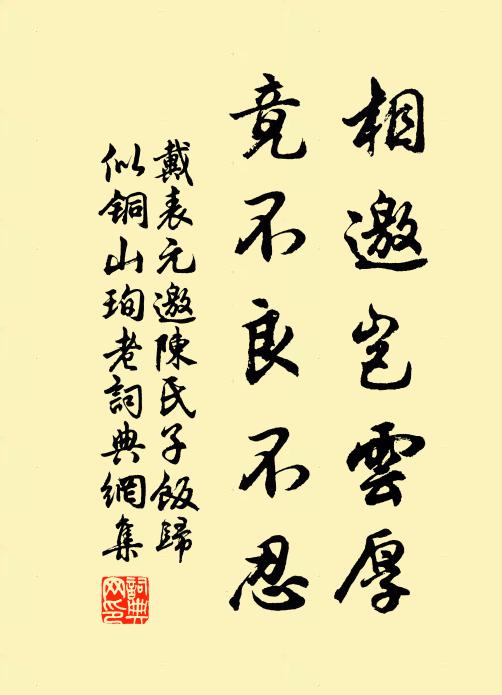 相邀豈雲厚
竟不良不忍
戴表元邀陳氏子飯歸
似銅山珣老詞典網集
詞典網印